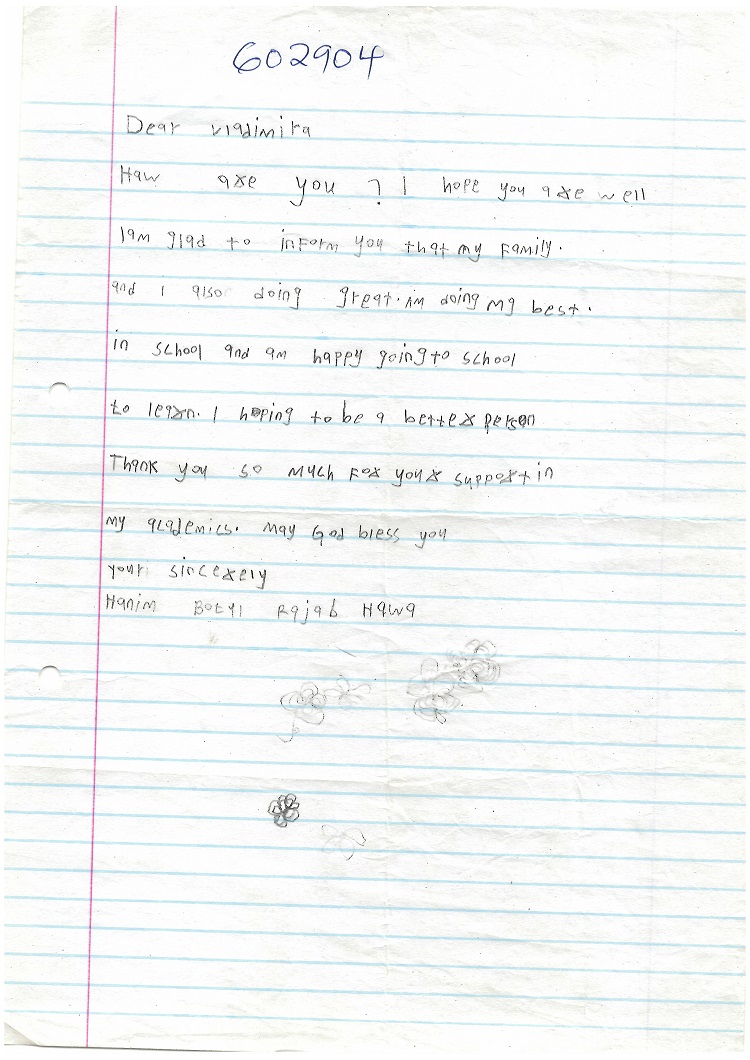 602904
Dear vladimira
Haw are you ? I hope you are well
Iam glad to inform you that my Family.
and I also doing great. im doing my best.
in school and am happy going to school
to learn. I hoping to be a better person
Thank you so much For your support in
my academics. may God bless you
your sincerely
Hanim Rajab Hawa